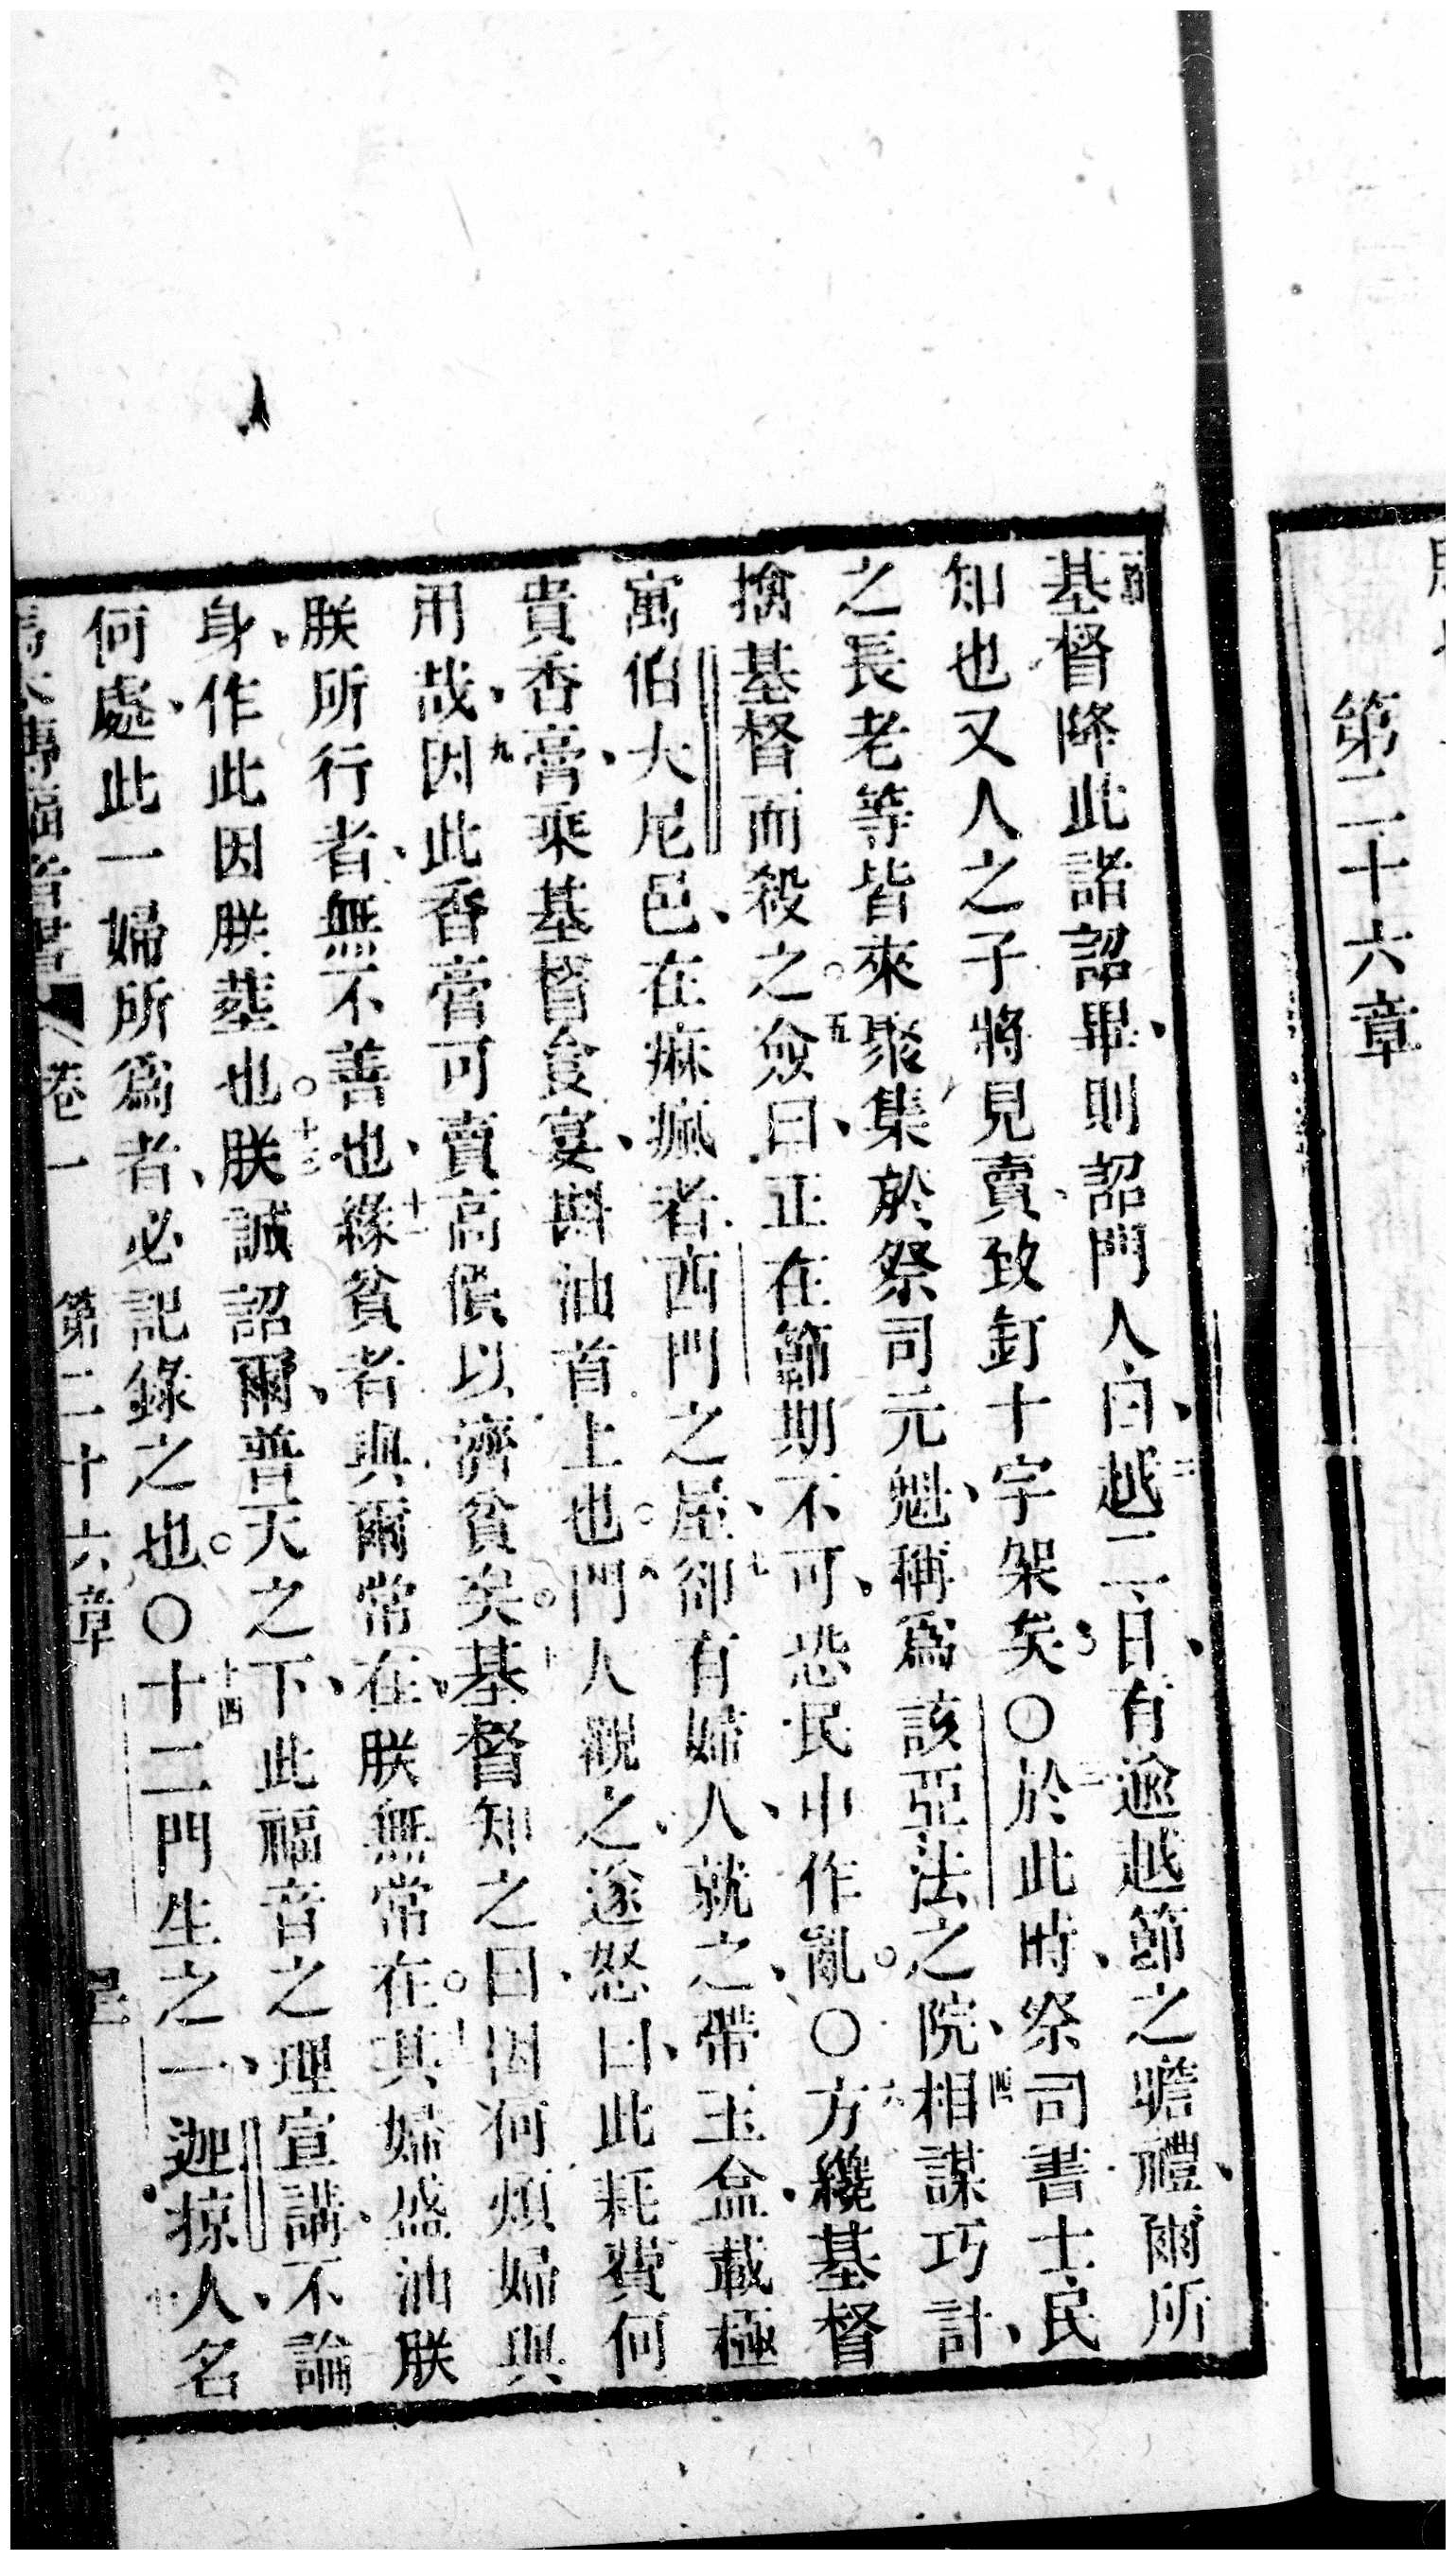 第二十六章
基督降此諸詔畢、則詔門人曰、越二日、有逾越節之瞻禮、爾所
知也又人之子將見賣、致釘十字架矣〇於此時、祭司書士民
之長老等皆來聚集於祭司元魁、稱爲該亞法之院、相謀巧計、
擒基督而殺之。僉曰、正在節期不可、恐民中作亂。〇方纔基督
寓伯大尼邑、在痳瘋者西門之屋、卻有婦人、就之、帶玉盒、載極
貴香膏、乘基督食宴、斟油首上也。門人覩之、遂怒曰、此耗費何
用哉、因此香膏可賣高價以濟貧矣。基督知之曰、因何煩婦與
朕所行者、無不善也、緣貧者與爾常在、在朕無常在。其婦盛油朕
身、作此因朕塟也。朕誠詔爾、普天之下、此福音之理宣講、不論
何處、此一婦所爲者、必記錄之也。〇十二門生之一、迦掠人、名
卷一 第二十六章